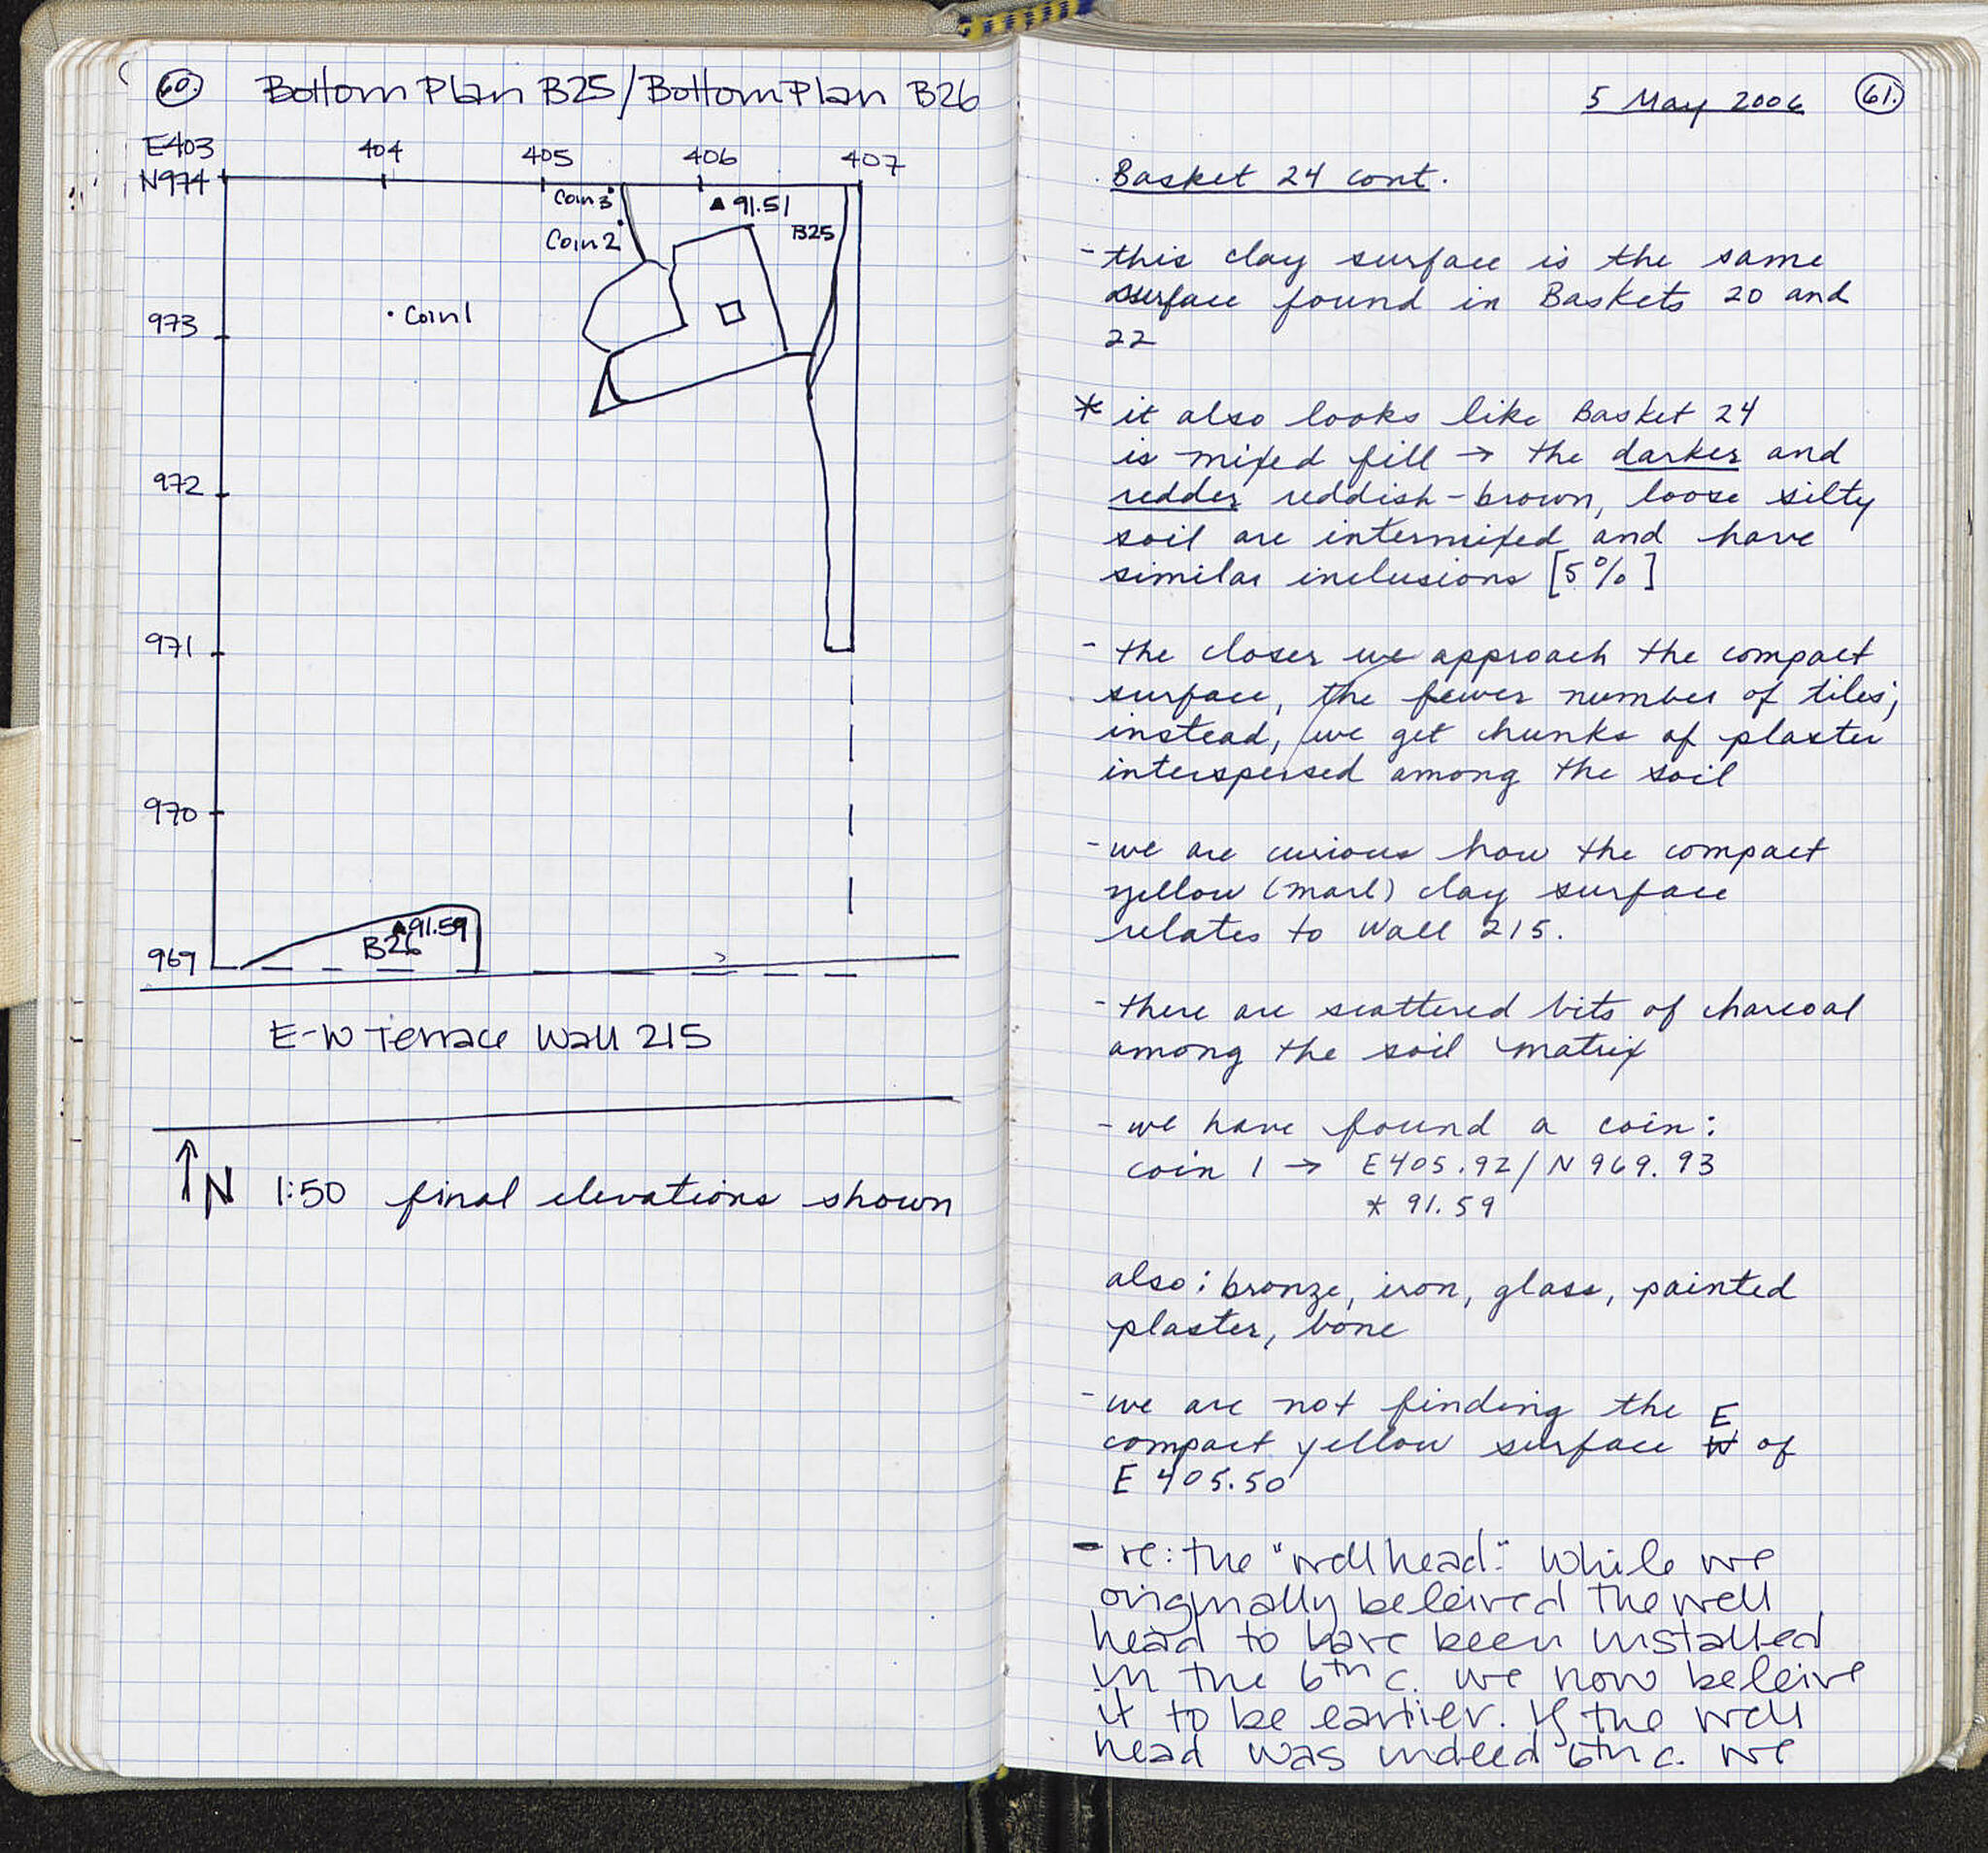 60. Bottom Plan B25/Bottom Plan B26
E403 404 405 406 407
N974
Coin 3
▲ 91.51
Coin 2
B25
• Coin 1
973
972
971
970
▲91.59
B26
969
E-W Terrace Wall 215
↑N 1:50 final elevations shown
5 May 2006 61.
Basket 24 cont.
- this clay surface is the same
surface found in Baskets 20 and
22
* it also looks like Basket 24
is mixed fill → the darker and
redder reddish-brown, loose silty
soil are intermixed and have
similar inclusions [5%]
- the closer we approach the compact
surface, the fewer number of tiles;
instead, we get chunks of plaster
interspersed among the soil
- we are curious how the compact
yellow (marl) clay surface
relates to Wall 215.
- there are scattered bits of charcoal
among the soil matrix
- we have found a coin:
coin 1 → E405.92/N969.93
* 91.59
also: bronze, iron, glass, painted
plaster, bone
- we are not finding the E
compact yellow surface W of
E 405.50
- re: the "well head." While we
originally beleived the well
head to have been installed
in the 6th c. we now beleive
it to be earlier. If the well
head was indeed 6th c. we